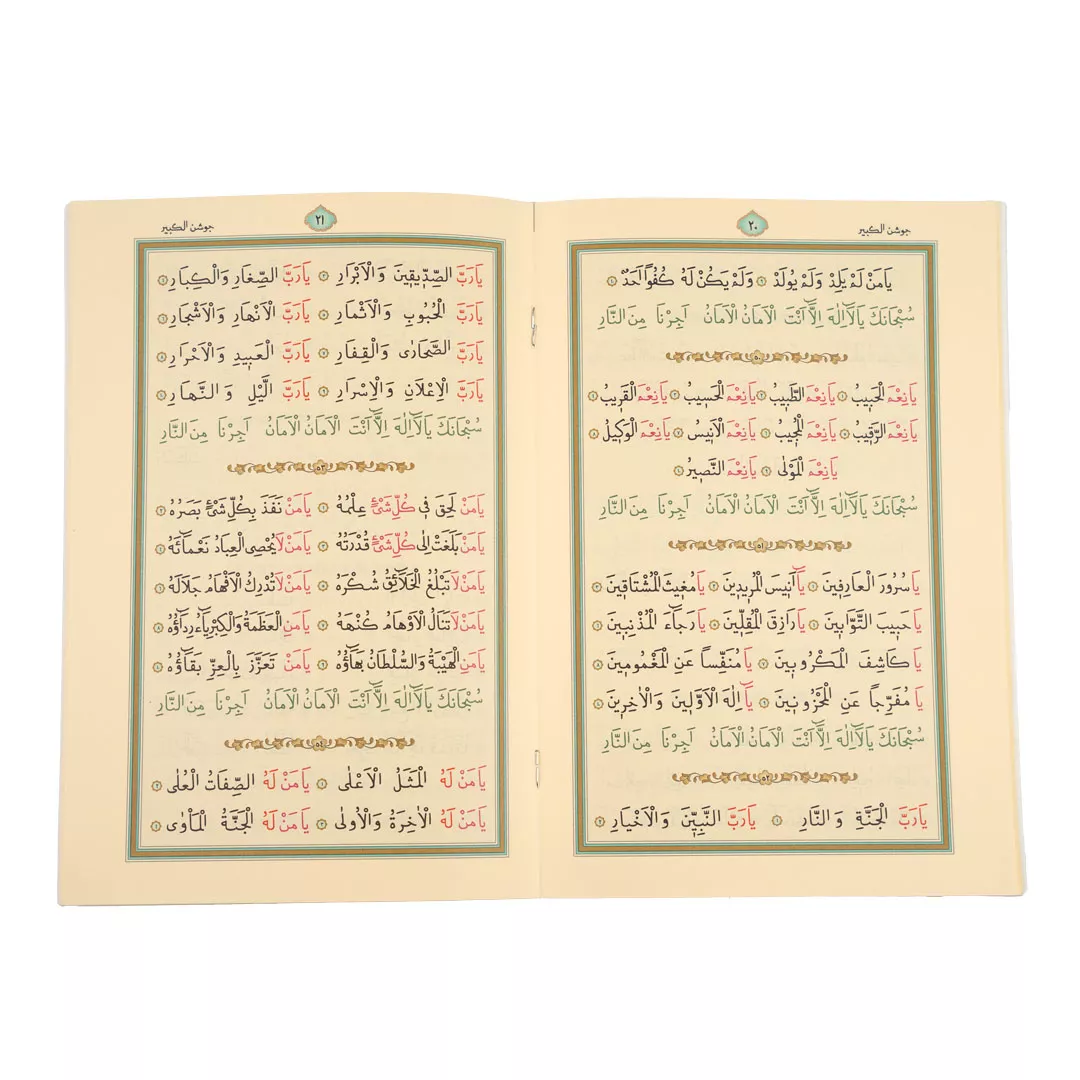 جوشن الكبير
٢٠
يَا مَنْ لَمْ يَلِدْ وَلَمْ يُولَدْ وَلَمْ يَكُنْ لَهُ كُفُوًا اَحَدٌ
سُبْحَانَكَ يَا لَٓا اِلٰهَ اِلَّٓا اَنْتَ الْاَمَانُ الْاَمَانُ اَجِرْنَا مِنَ النَّارِ
٥٠
يَا نِعْمَ الْحَبِيبُ يَا نِعْمَ الطَّبِيبُ يَا نِعْمَ الْحَسِيبُ يَا نِعْمَ الْقَرِيبُ
يَا نِعْمَ الرَّقِيبُ يَا نِعْمَ الْمُجِيبُ يَا نِعْمَ الْاَنِيسُ يَا نِعْمَ الْوَكِيلُ
يَا نِعْمَ الْمَوْلٰى يَا نِعْمَ النَّصِيرُ
سُبْحَانَكَ يَا لَٓا اِلٰهَ اِلَّٓا اَنْتَ الْاَمَانُ الْاَمَانُ اَجِرْنَا مِنَ النَّارِ
٥١
يَا سُرُورَ الْعَارِفِينَ يَٓا اَنِيسَ الْمُرِيدِينَ يَا مُغِيثَ الْمُشْتَاقِينَ
يَا حَبِيبَ التَّوَّابِينَ يَا رَازِقَ الْمُقِلِّينَ يَا رَجَٓاءَ الْمُذْنِبِينَ
يَا كَاشِفَ الْمَكْرُوبِينَ يَا مُنَفِّسًا عَنِ الْمَغْمُومِينَ
يَا مُفَرِّجًا عَنِ الْمَحْزُونِينَ يَٓا اِلٰهَ الْاَوَّلِينَ وَالْاٰخِرِينَ
سُبْحَانَكَ يَا لَٓا اِلٰهَ اِلَّٓا اَنْتَ الْاَمَانُ الْاَمَانُ اَجِرْنَا مِنَ النَّارِ
٥٢
يَا رَبَّ الْجَنَّةِ وَالنَّارِ يَا رَبَّ النَّبِيِّينَ وَالْاَخْيَارِ
جوشن الكبير
٢١
يَا رَبَّ الصِّدِّيقِينَ وَالْاَبْرَارِ يَا رَبَّ الصِّغَارِ وَالْكِبَارِ
يَا رَبَّ الْحُبُوبِ وَالْاَثْمَارِ يَا رَبَّ الْاَنْهَارِ وَالْاَشْجَارِ
يَا رَبَّ الصَّحَارٰى وَالْقِفَارِ يَا رَبَّ الْعَبِيدِ وَالْاَحْرَارِ
يَا رَبَّ الْاِعْلَانِ وَالْاِسْرَارِ يَا رَبَّ الَّيْلِ وَالنَّهَارِ
سُبْحَانَكَ يَا لَٓا اِلٰهَ اِلَّٓا اَنْتَ الْاَمَانُ الْاَمَانُ اَجِرْنَا مِنَ النَّارِ
٥٣
يَا مَنْ لَحِقَ فِي كُلِّ شَيْءٍ عِلْمُهُ يَا مَنْ نَفَذَ بِكُلِّ شَيْءٍ بَصَرُهُ
يَا مَنْ بَلَغَتْ اِلٰى كُلِّ شَيْءٍ قُدْرَتُهُ يَا مَنْ لَا يُحْصِي الْعِبَادُ نَعْمَائَهُ
يَا مَنْ لَا تَبْلُغُ الْخَلَٓائِقُ شُكْرَهُ يَا مَنْ لَا تُدْرِكُ الْاَفْهَامُ جَلَالَهُ
يَا مَنْ لَا تَنَالُ الْاَوْهَامُ كُنْهَهُ يَا مَنِ الْعَظَمَةُ وَالْكِبْرِيَٓاءُ رِدَٓاؤُهُ
يَا مَنِ الْهَيْبَةُ وَالسُّلْطَانُ بَهَٓاؤُهُ يَا مَنْ تَعَزَّزَ بِالْعِزِّ بَقَٓاؤُهُ
سُبْحَانَكَ يَا لَٓا اِلٰهَ اِلَّٓا اَنْتَ الْاَمَانُ الْاَمَانُ اَجِرْنَا مِنَ النَّارِ
٥٤
يَا مَنْ لَهُ الْمَثَلُ الْاَعْلٰى يَا مَنْ لَهُ الصِّفَاتُ الْعُلٰى
يَا مَنْ لَهُ الْاٰخِرَةُ وَالْاُولٰى يَا مَنْ لَهُ الْجَنَّةُ الْمَأْوٰى